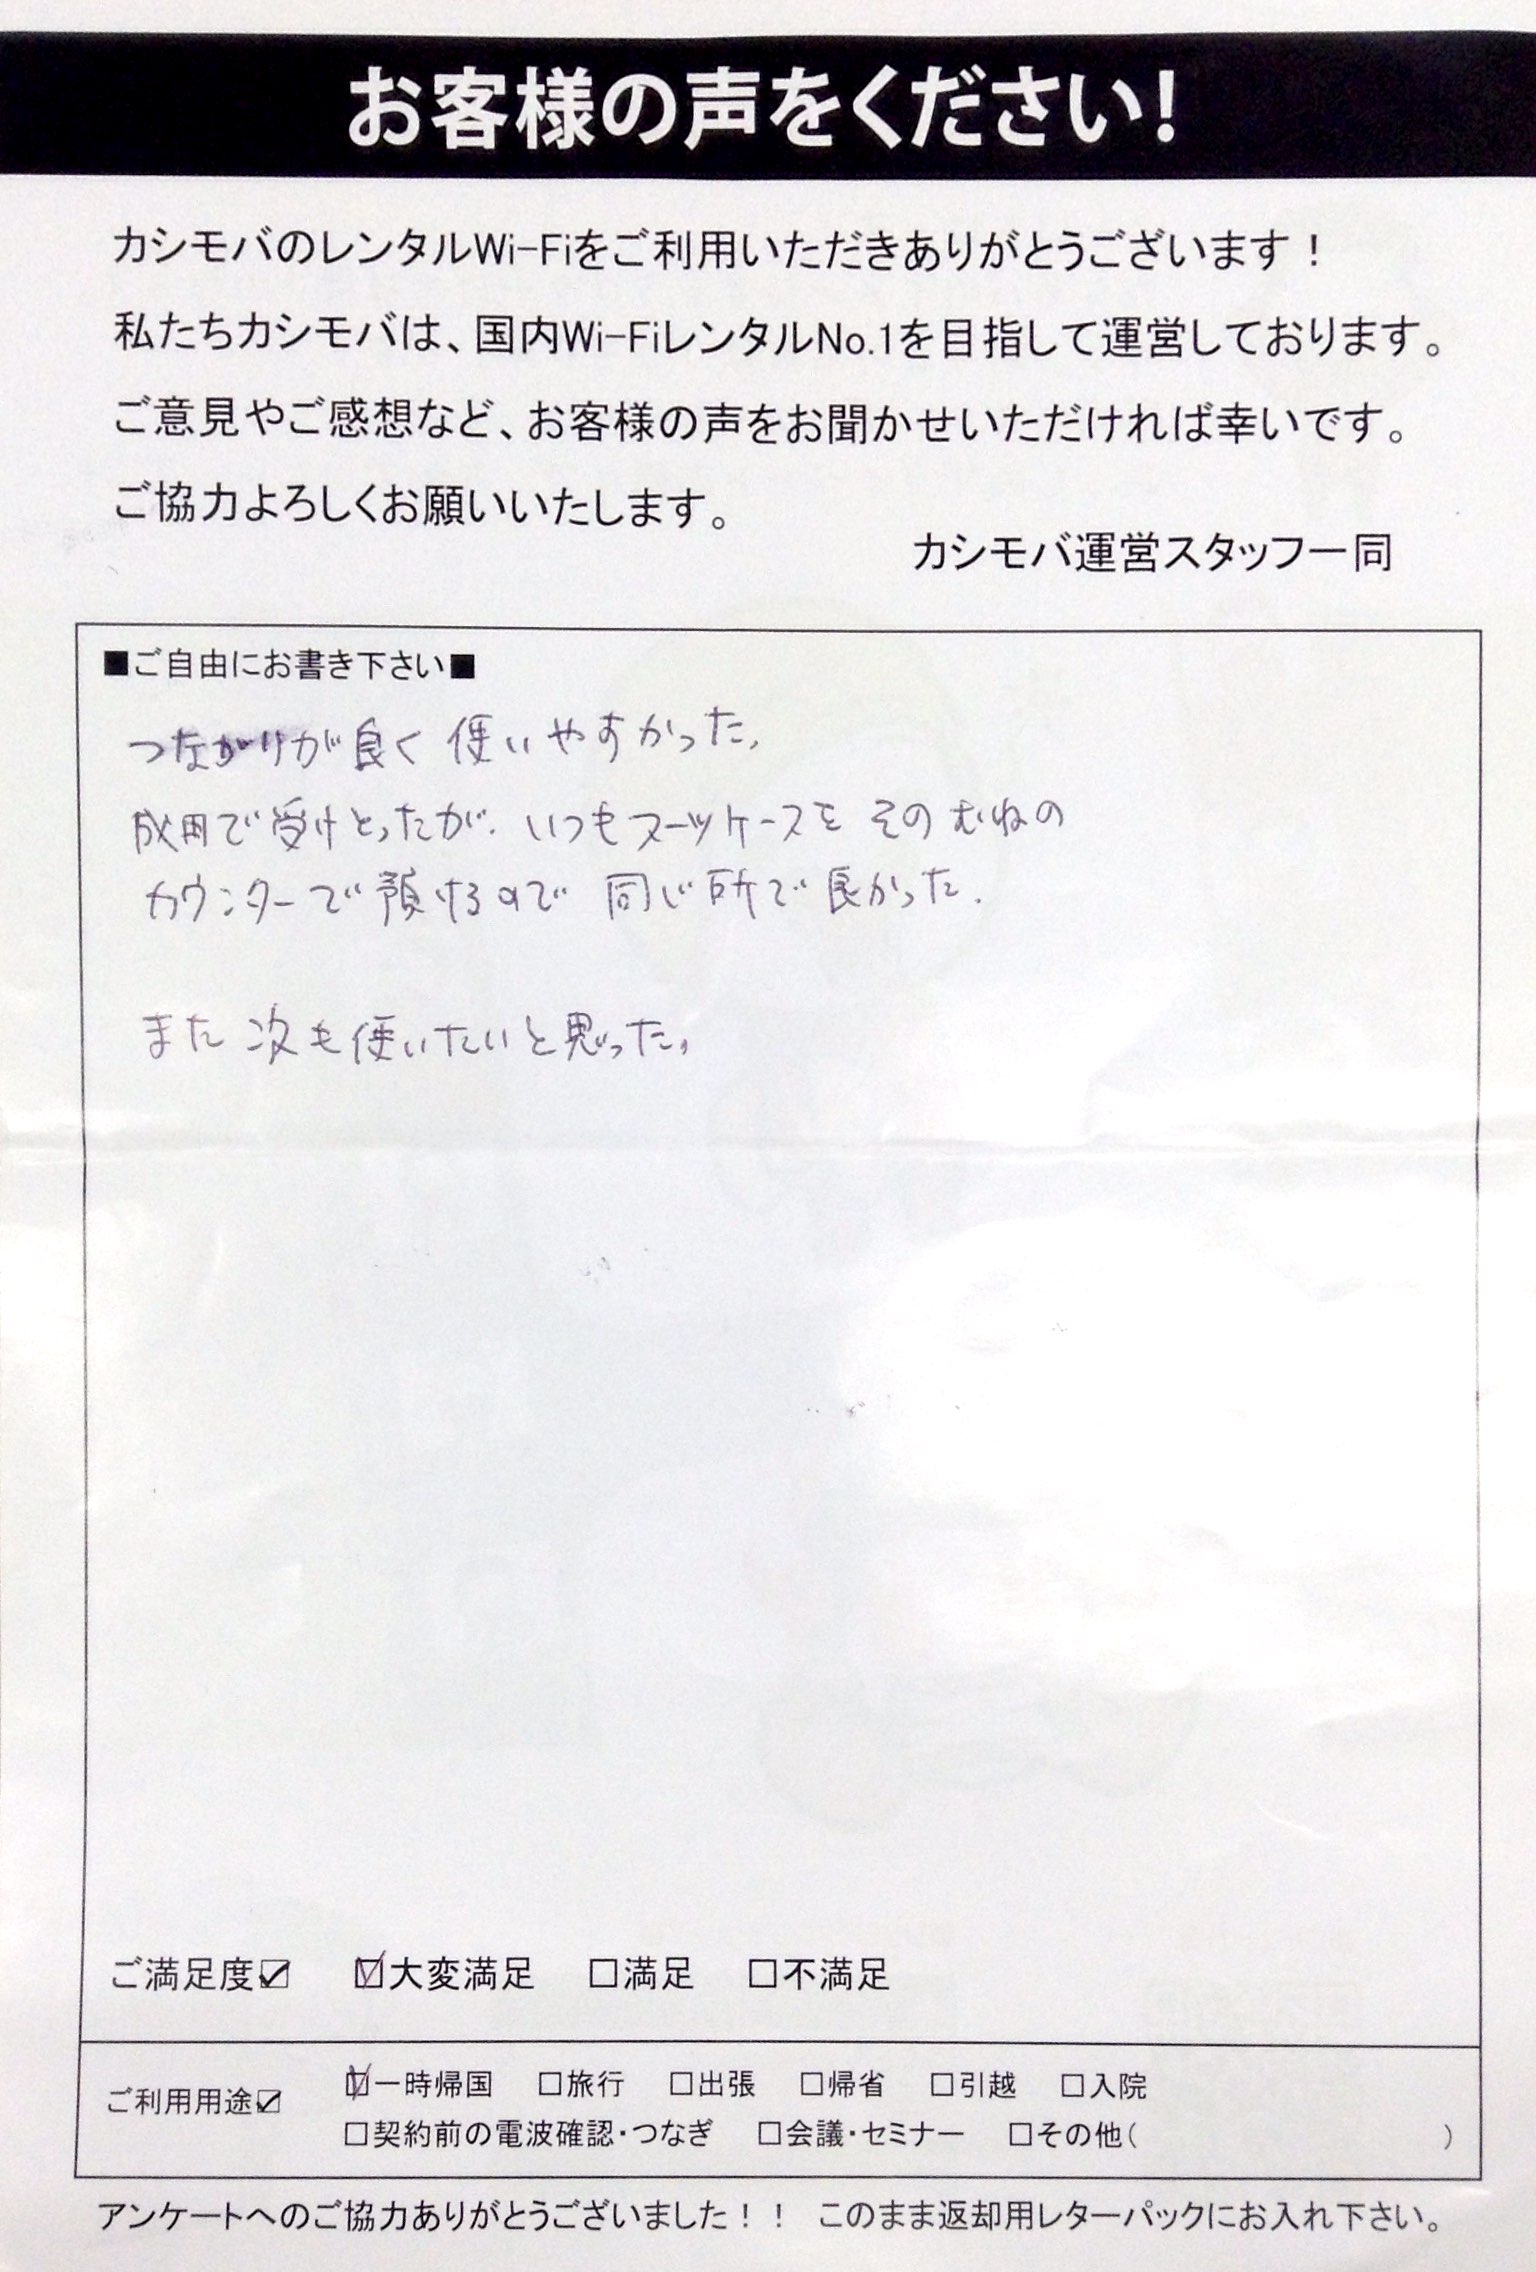 お客様の声をください!
カシモバのレンタルWi-Fiをご利用いただきありがとうございます！
私たちカシモバは、国内Wi-FiレンタルNo.1を目指して運営しております。
ご意見やご感想など、お客様の声をお聞かせいただければ幸いです。
ご協力よろしくお願いいたします。
カシモバ運営スタッフ一同
■ご自由にお書き下さい■
つながりが良く使いやすかった。
で受けとったが、いつもスーツケースをそのむねの
カウンターで預けるので同じ所で良かった.
また次も使いたいと思った。
ご満足度☑ ☑大変満足 □満足 □不満足
ご利用用途☑ ☑一時帰国 □旅行 □出張 □帰省 □引越 □入院
□契約前の電波確認・つなぎ □会議・セミナー □その他( )
アンケートへのご協力ありがとうございました！！ このまま返却用レターパックにお入れ下さい。